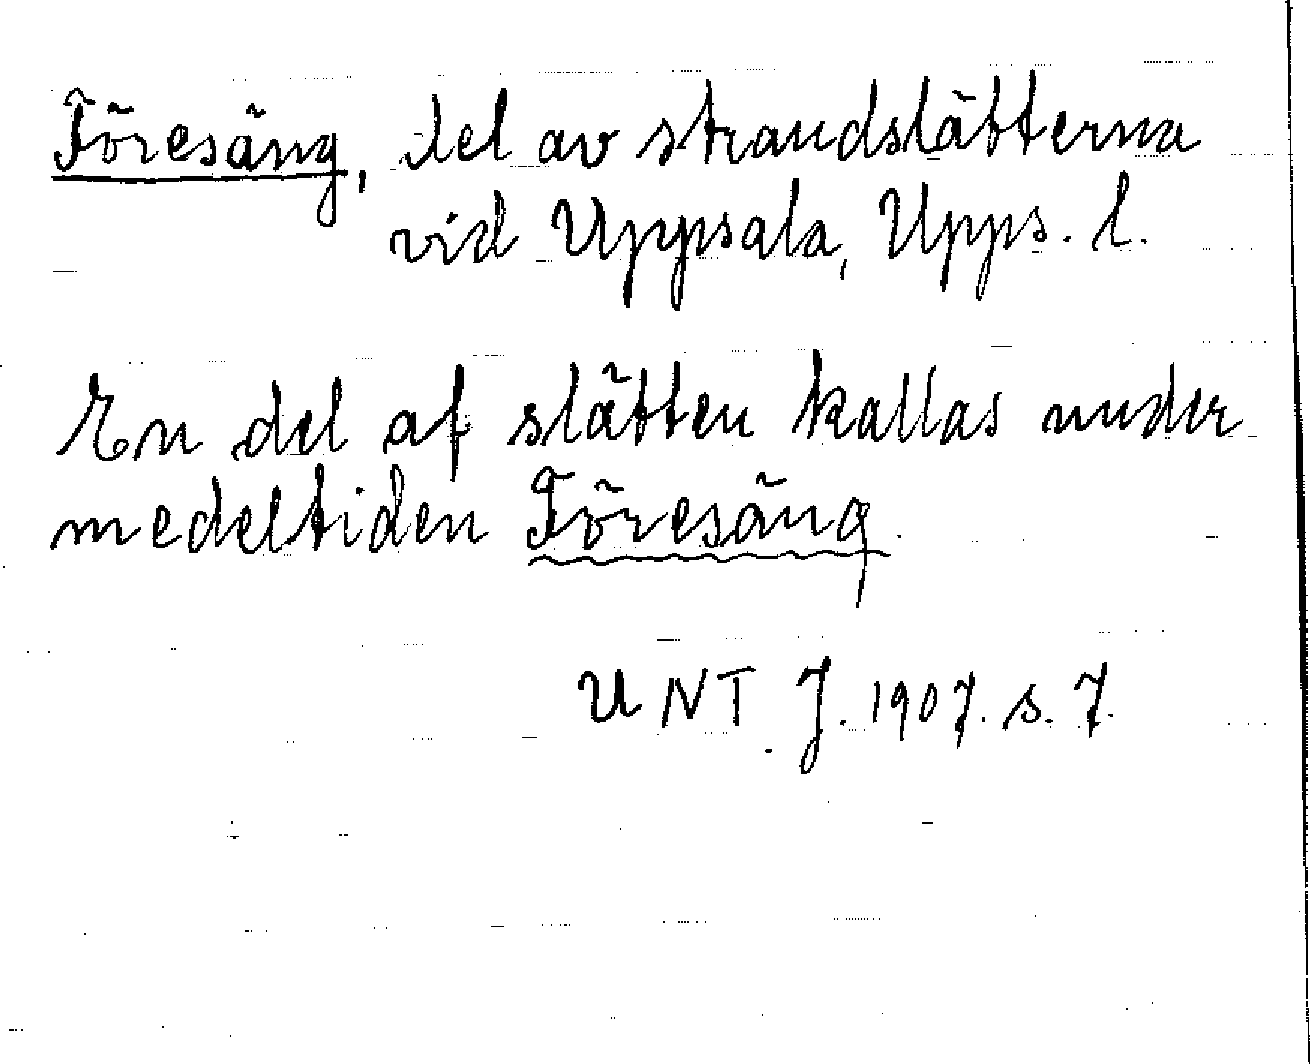 Föresäng, del av strandslätterna
vid Uppsala, Upps. l.
En del af slätten kallas under
medeltiden Föresäng
UNT. J. 1907. s. 7.